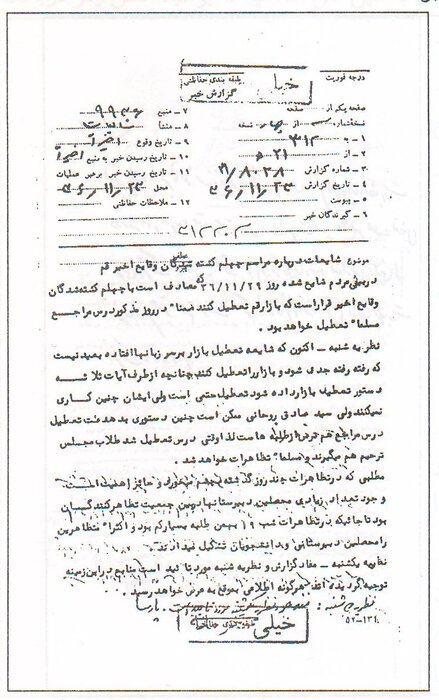 درجه فوریت
خیلی
طبقه بندی حفاظتی
گزارش خبر
صفحه یکم از صفحه
نسخه شماره از نسخه
۱ – به ۳۱۲
۲ – از ۲۱
۳ – شماره گزارش
۴ – تاریخ گزارش ۳۶/۱۱/۲۳
۵ – پیوست
۶ – گیرندگان خبر
۷ – منبع
۸ – منشأ
۹ – تاریخ وقوع اخیراً
۱۰ – تاریخ رسیدن خبر به منبع اخیراً
۱۱ – تاریخ رسیدن خبر برهبر عملیات
محل ۳۶/۱۱/۲۳
۱۲ – ملاحظات حفاظتی
موضوع شایعات درباره مراسم چهلم کشته شدگان وقایع اخیر قم
دربین مردم شایع شده روز ۳۶/۱۱/۲۹ که مصادف است با چهلم کشته شدگان
وقایع اخیر قرار است که بازار قم تعطیل کنند ضمنا" در روز مذکور درس مراجع
مسلما" تعطیل خواهد بود .
نظریه شنبه – اکنون که شایعه تعطیل بازار برسر زبانها افتاده بعید نیست
که رفته رفته جدی شود و بازار را تعطیل کنند چنانچه از طرف آیات ثلاثه
دستور تعطیل بازار داده شود تعطیل حتمی است ولی ایشان چنین کاری
نمیکنند ولی سید صادق روحانی ممکن است چنین دستوری بدهد علت تعطیل
درس مراجع هم ترس از طلبه هاست لذا وقتی درس تعطیل شد طلاب مجلس
ترحیم هم میگیرند و مسلما" تظاهرات خواهد شد .
مطلبی که در تظاهرات چند روز گذشته بچشم میخورد و حائز اهمیت است
وجود تعداد زیادی محصلین دبیرستانها در بین جمعیت تظاهرکنندگان
بود تا جائیکه در تظاهرات شب ۱۹ بهمن طلبه بسیار کم بود و اکثرا" متظاهرین
را محصلین دبیرستانی و دانشجویان تشکیل میدادند .
نظریه یکشنبه – مفاد گزارش و نظریه شنبه مورد تائید است منابع در این زمینه
توجیه گردیده اند هرگونه اطلاعی بموقع به عرض خواهد رسید .
نظریه سه شنبه : پارسا
خیلی
طبقه بندی حفاظتی